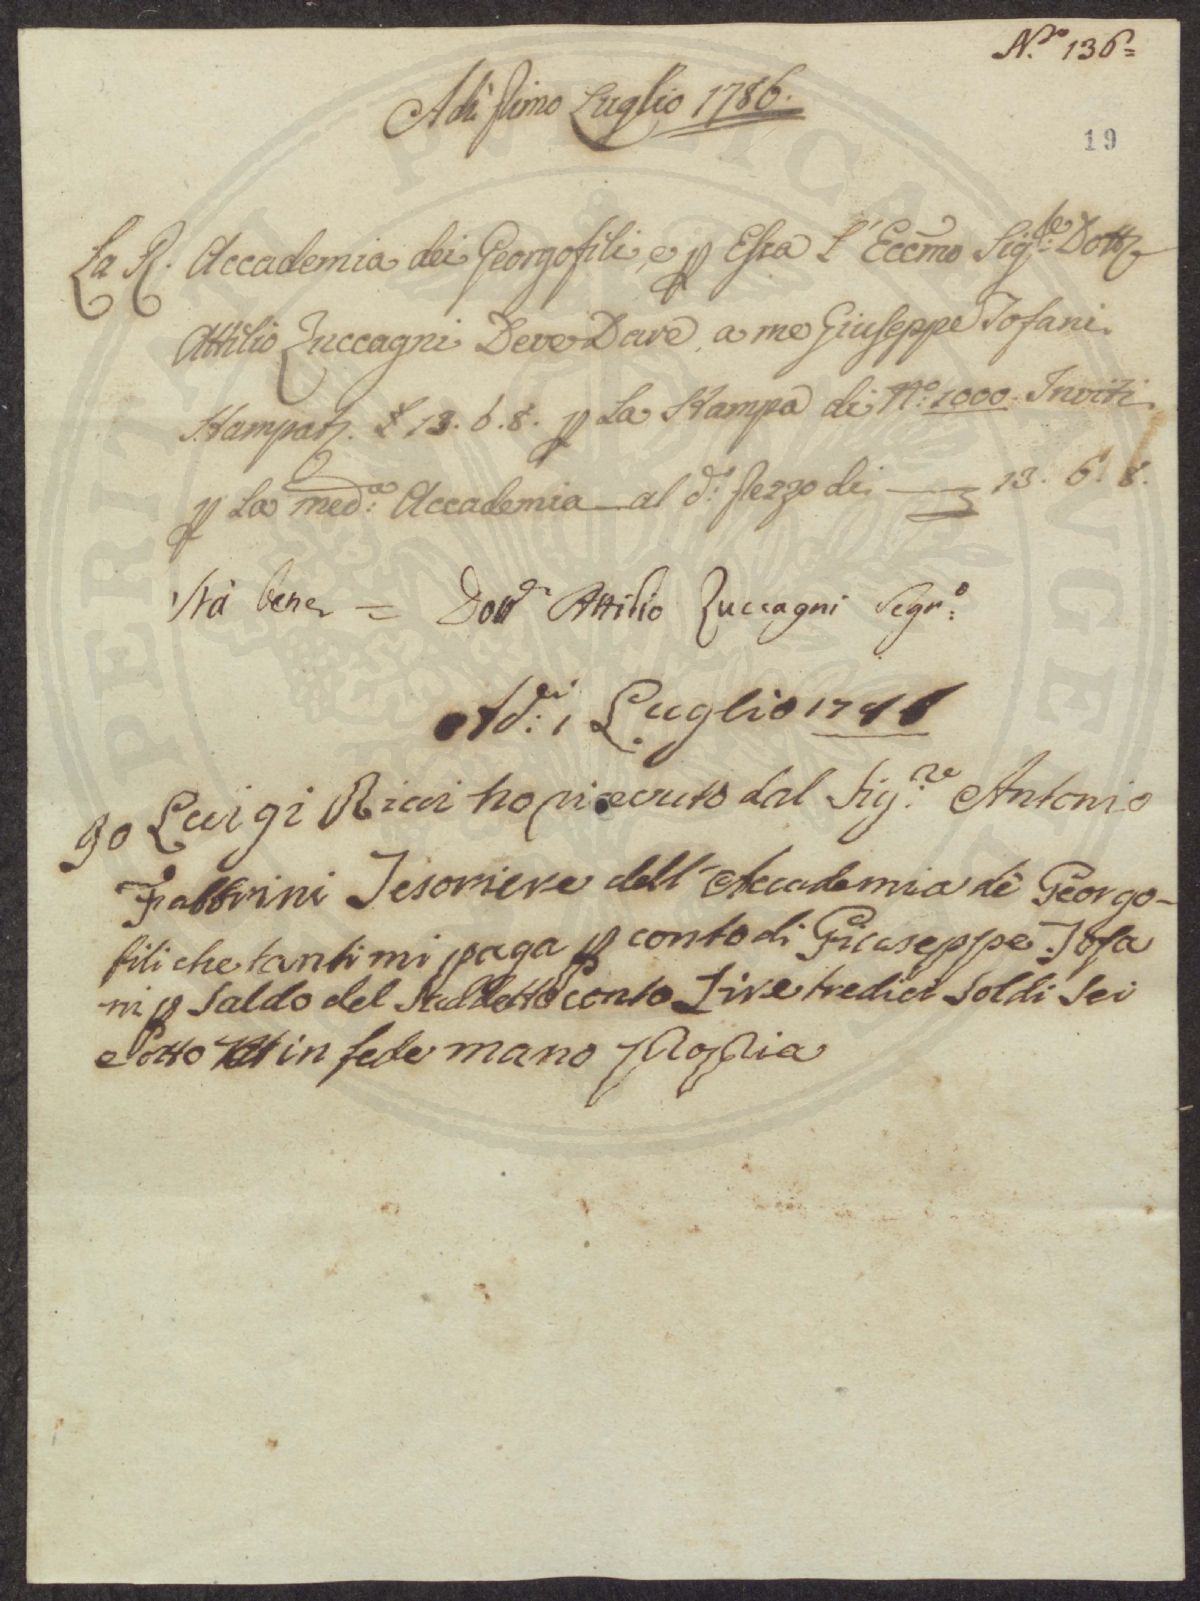 N.ro 136=
Adì Primo Luglio 1786.
19
La R. Accademia dei Georgofili, e p Essa L' Eccmo Sig.re Dottr
Attilio Zuccagni Deve Dare, a me Giuseppe Tofani.
Stampatr. £ 13. 6. 8. p La Stampa di N.o 1000. Inviti.
p La med.a Accademia al d.o Prezzo di 13. 6. 8.
Stà bene = Dott.r Attilio Zuccagni Segr.o:
Ad:i 1 Luglio 1786
Io Luigi Ricci ho ricevuto dal Sig.re Antonio
Fabbrini Tesoriere dell' Accademia de Georgo-
fili che tanti mi paga p conto di Giuseppe Tofa
ni p Saldo del Suddetto Conto Lire tredici Soldi Sei
e otto in fede mano Propria
PERITI PUBLICA LUCE